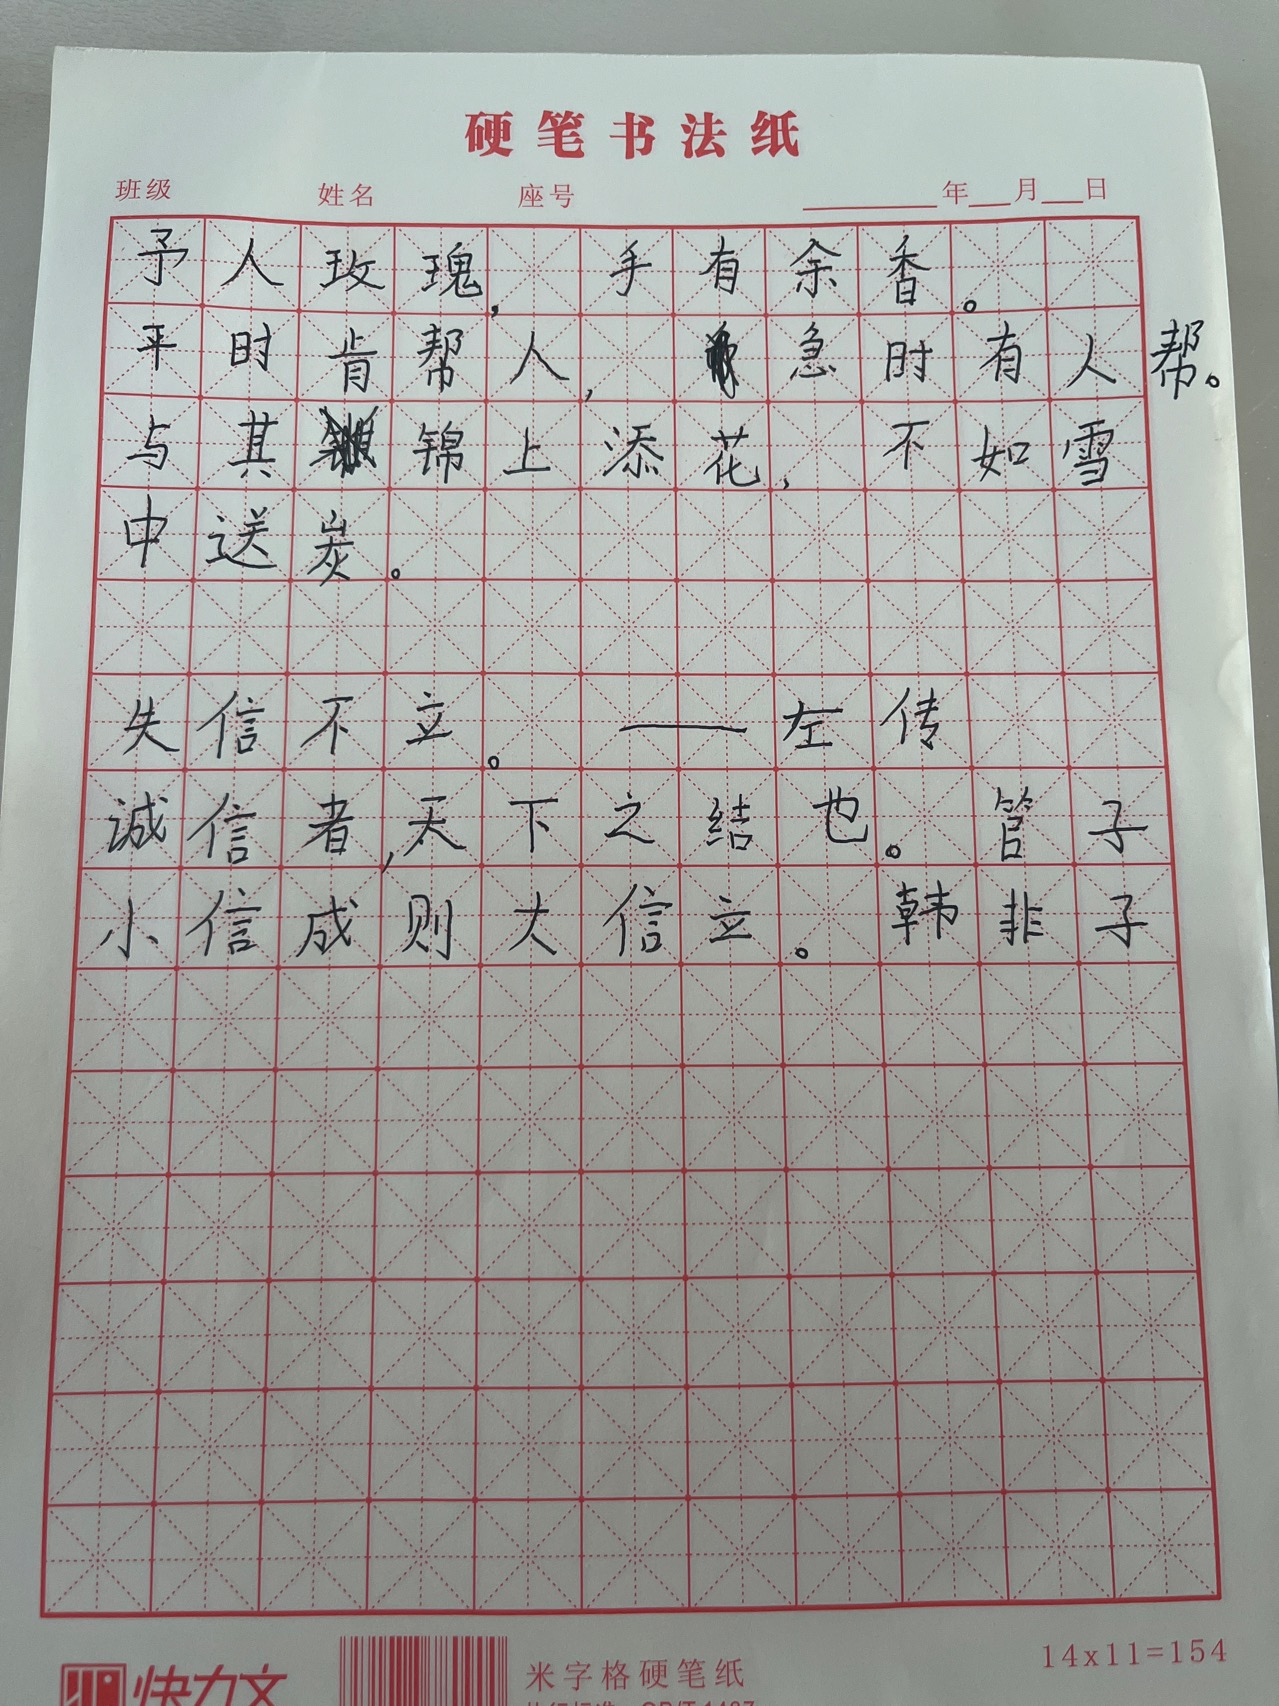 硬笔书法纸
班级 姓名 座号 年 月 日
予人玫瑰, 手有余香。
平时肯帮人, 急时有人帮。
与其锦上添花, 不如雪
中送炭。
失信不立。 ——左传
诚信者,天下之结也。 管子
小信成则大信立。 韩非子
快力文
米字格硬笔纸
14x11=154